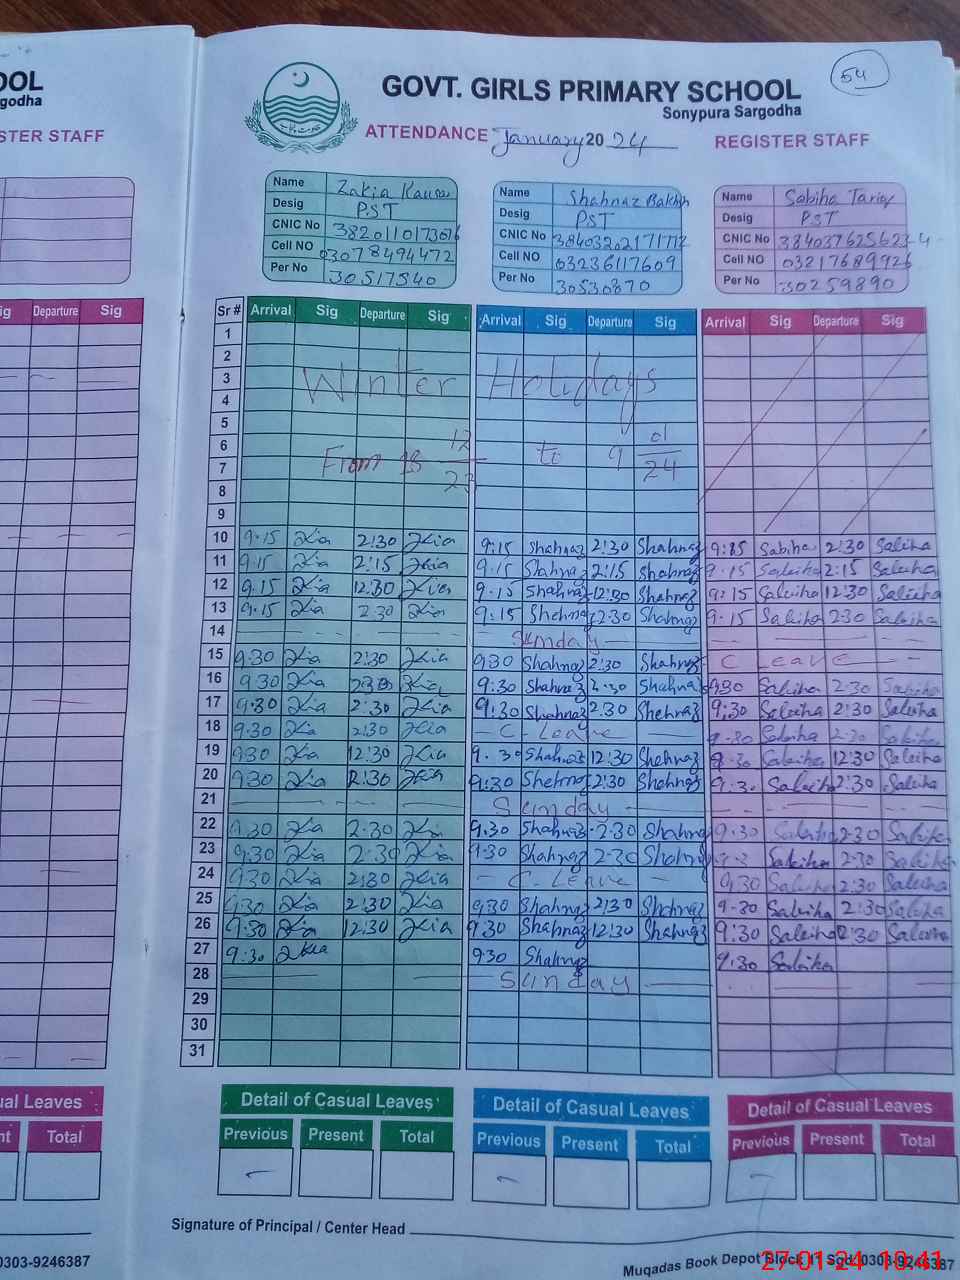 OOL
GOVT. GIRLS PRIMARY SCHOOL
54
Sonypura Sargodha
rgodha
STER STAFF
ATTENDANCE January 2024 REGISTER STAFF
Name Zakia Kausar
Desig PST
CNIC No
Cell NO 03078494472
Per No 30517540
Name Shahnaz Bakhsh
Desig PST
CNIC No 3840320217171
Cell NO 03236117609
Per No 30530870
Name Sabiha Tariq
Desig PST
CNIC No
Cell NO 03217689926
Per No 30259890
ig Departure Sig
Sr # Arrival Sig Departure Sig Arrival Sig Departure Sig Arrival Sig Departure Sig
1
2
3 Winter Holidays
4
5
6
7 From 18 12/23 to 9 01/24
8
9
10 9.15 Zkia 2:30 Zkia 9:15 Shahnaz 2:30 Shahnaz 9:15 Sabiha 2:30 Sabiha
11 9.15 Zkia 2:15 Zkia 9.15 Shahnaz 2:15 Shahnaz 9.15 Sabiha 2:15 Sabiha
12 9.15 Zkia 12:30 Zkia 9.15 Shahnaz 12:30 Shahnaz 9:15 Sabiha 12:30 Sabiha
13 9.15 Zkia 2.30 Zkia 9.15 Shahnaz 2.30 Shahnaz 9.15 Sabiha 2:30 Sabiha
14 Sunday
15 9.30 Zkia 2:30 Zkia 9.30 Shahnaz 2:30 Shahnaz C Leave
16 9.30 Zkia 2:30 Zkia 9:30 Shahnaz 2.30 Shahnaz 9.30 Sabiha 2.30 Sabiha
17 9.30 Zkia 2:30 Zkia 9:30 Shahnaz 2.30 Shahnaz 9:30 Sabiha 2:30 Sabiha
18 9.30 Zkia 2:30 Zkia C. Leave 9.30 Sabiha 2:30 Sabiha
19 9.30 Zkia 12:30 Zkia 9.30 Shahnaz 12:30 Shahnaz 9.30 Sabiha 12:30 Sabiha
20 9.30 Zkia 2:30 Zkia 9:30 Shahnaz 2:30 Shahnaz 9.30 Sabiha 2:30 Sabiha
21 Sunday
22 9.30 Zkia 2.30 Zkia 9.30 Shahnaz 2.30 Shahnaz 9.30 Sabiha 2:30 Sabiha
23 9.30 Zkia 2.30 Zkia 9.30 Shahnaz 2.30 Shahnaz Sabiha 2.30 Sabiha
24 9.30 Zkia 2:30 Zkia C. Leave 9.30 Sabiha 2:30 Sabiha
25 9.30 Zkia 2:30 Zkia 9.30 Shahnaz 2:30 Shahnaz 9.30 Sabiha 2:30 Sabiha
26 9.30 Zkia 12:30 Zkia 9.30 Shahnaz 12:30 Shahnaz 9:30 Sabiha 12:30 Sabiha
27 9:30 Zkia 9.30 Shahnaz 9.30 Sabiha
28 Sunday
29
30
31
ual Leaves
Detail of Casual Leaves Detail of Casual Leaves Detail of Casual Leaves
nt Total
Previous Present Total Previous Present Total Previous Present Total
Signature of Principal / Center Head
0303-9246387
Muqadas Book Depot Block 17 Sgd. 0303-9246387
27-01-24 10:41